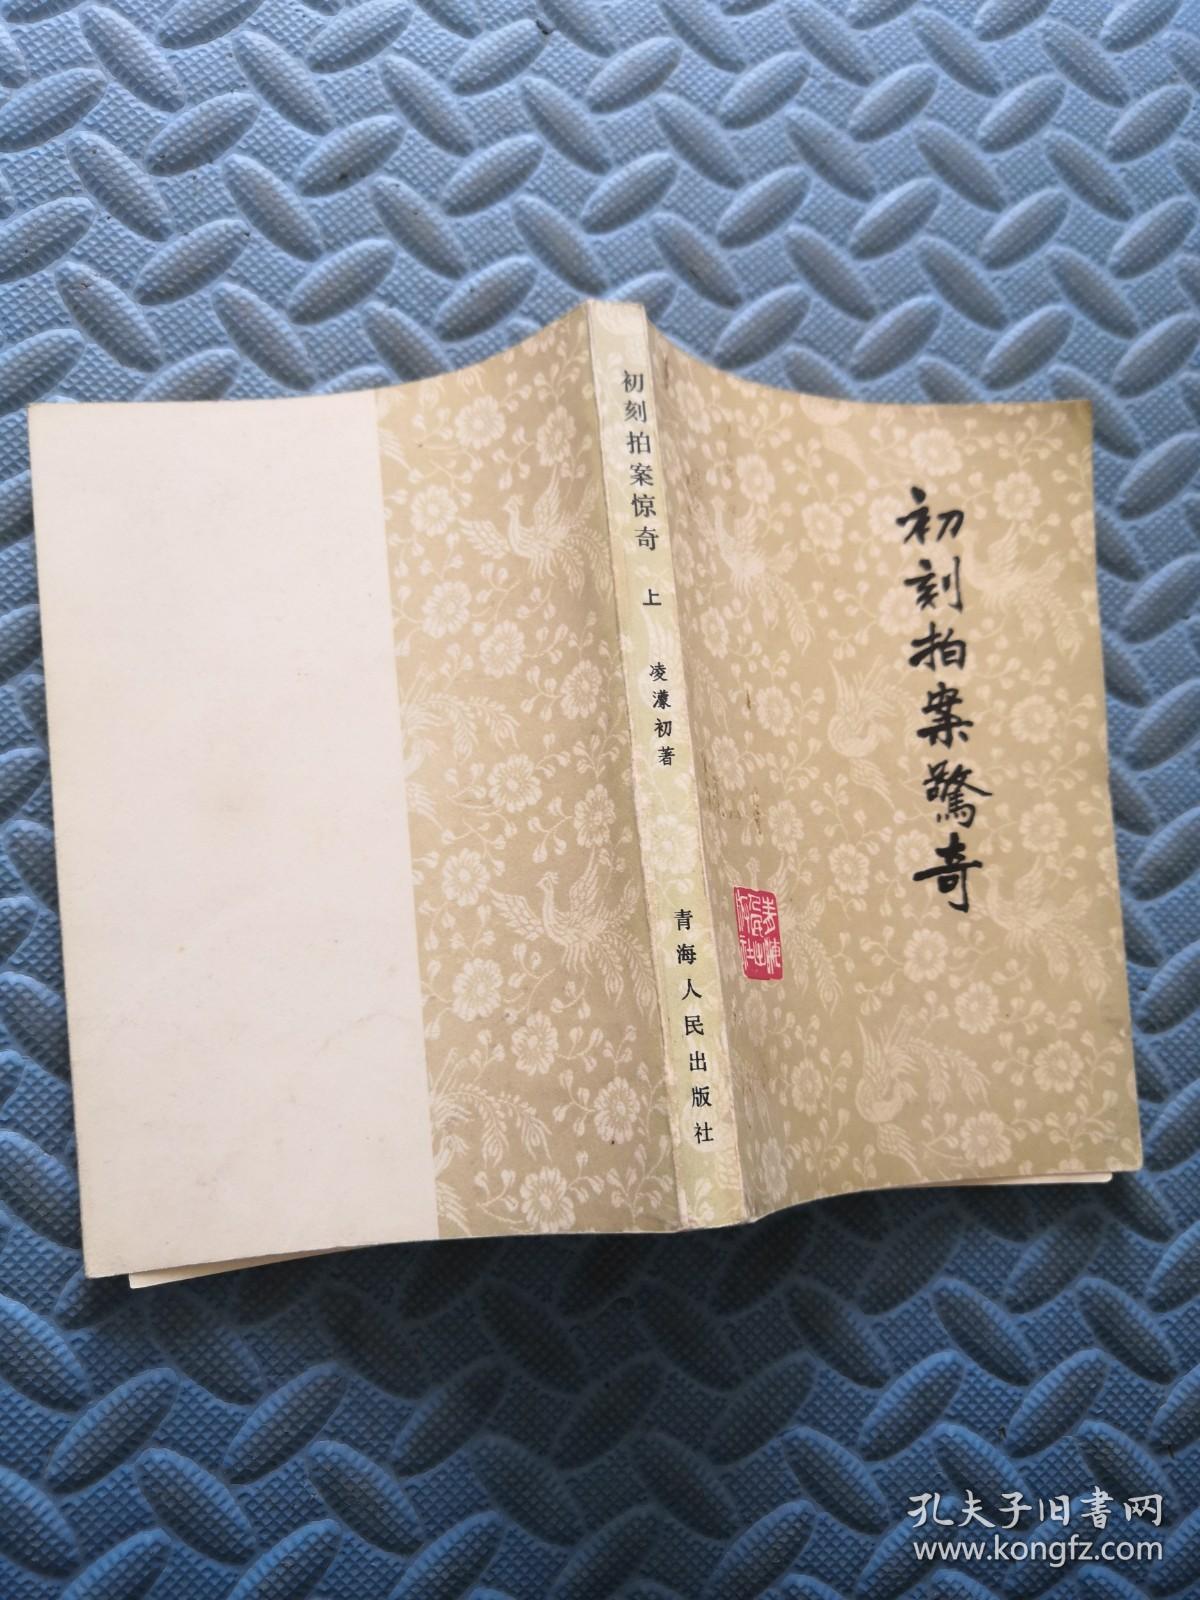 初刻拍案惊奇 上 凌濛初著 青海人民出版社
初刻拍案驚奇
青海人民出版社
孔夫子旧書网
www.kongfz.com